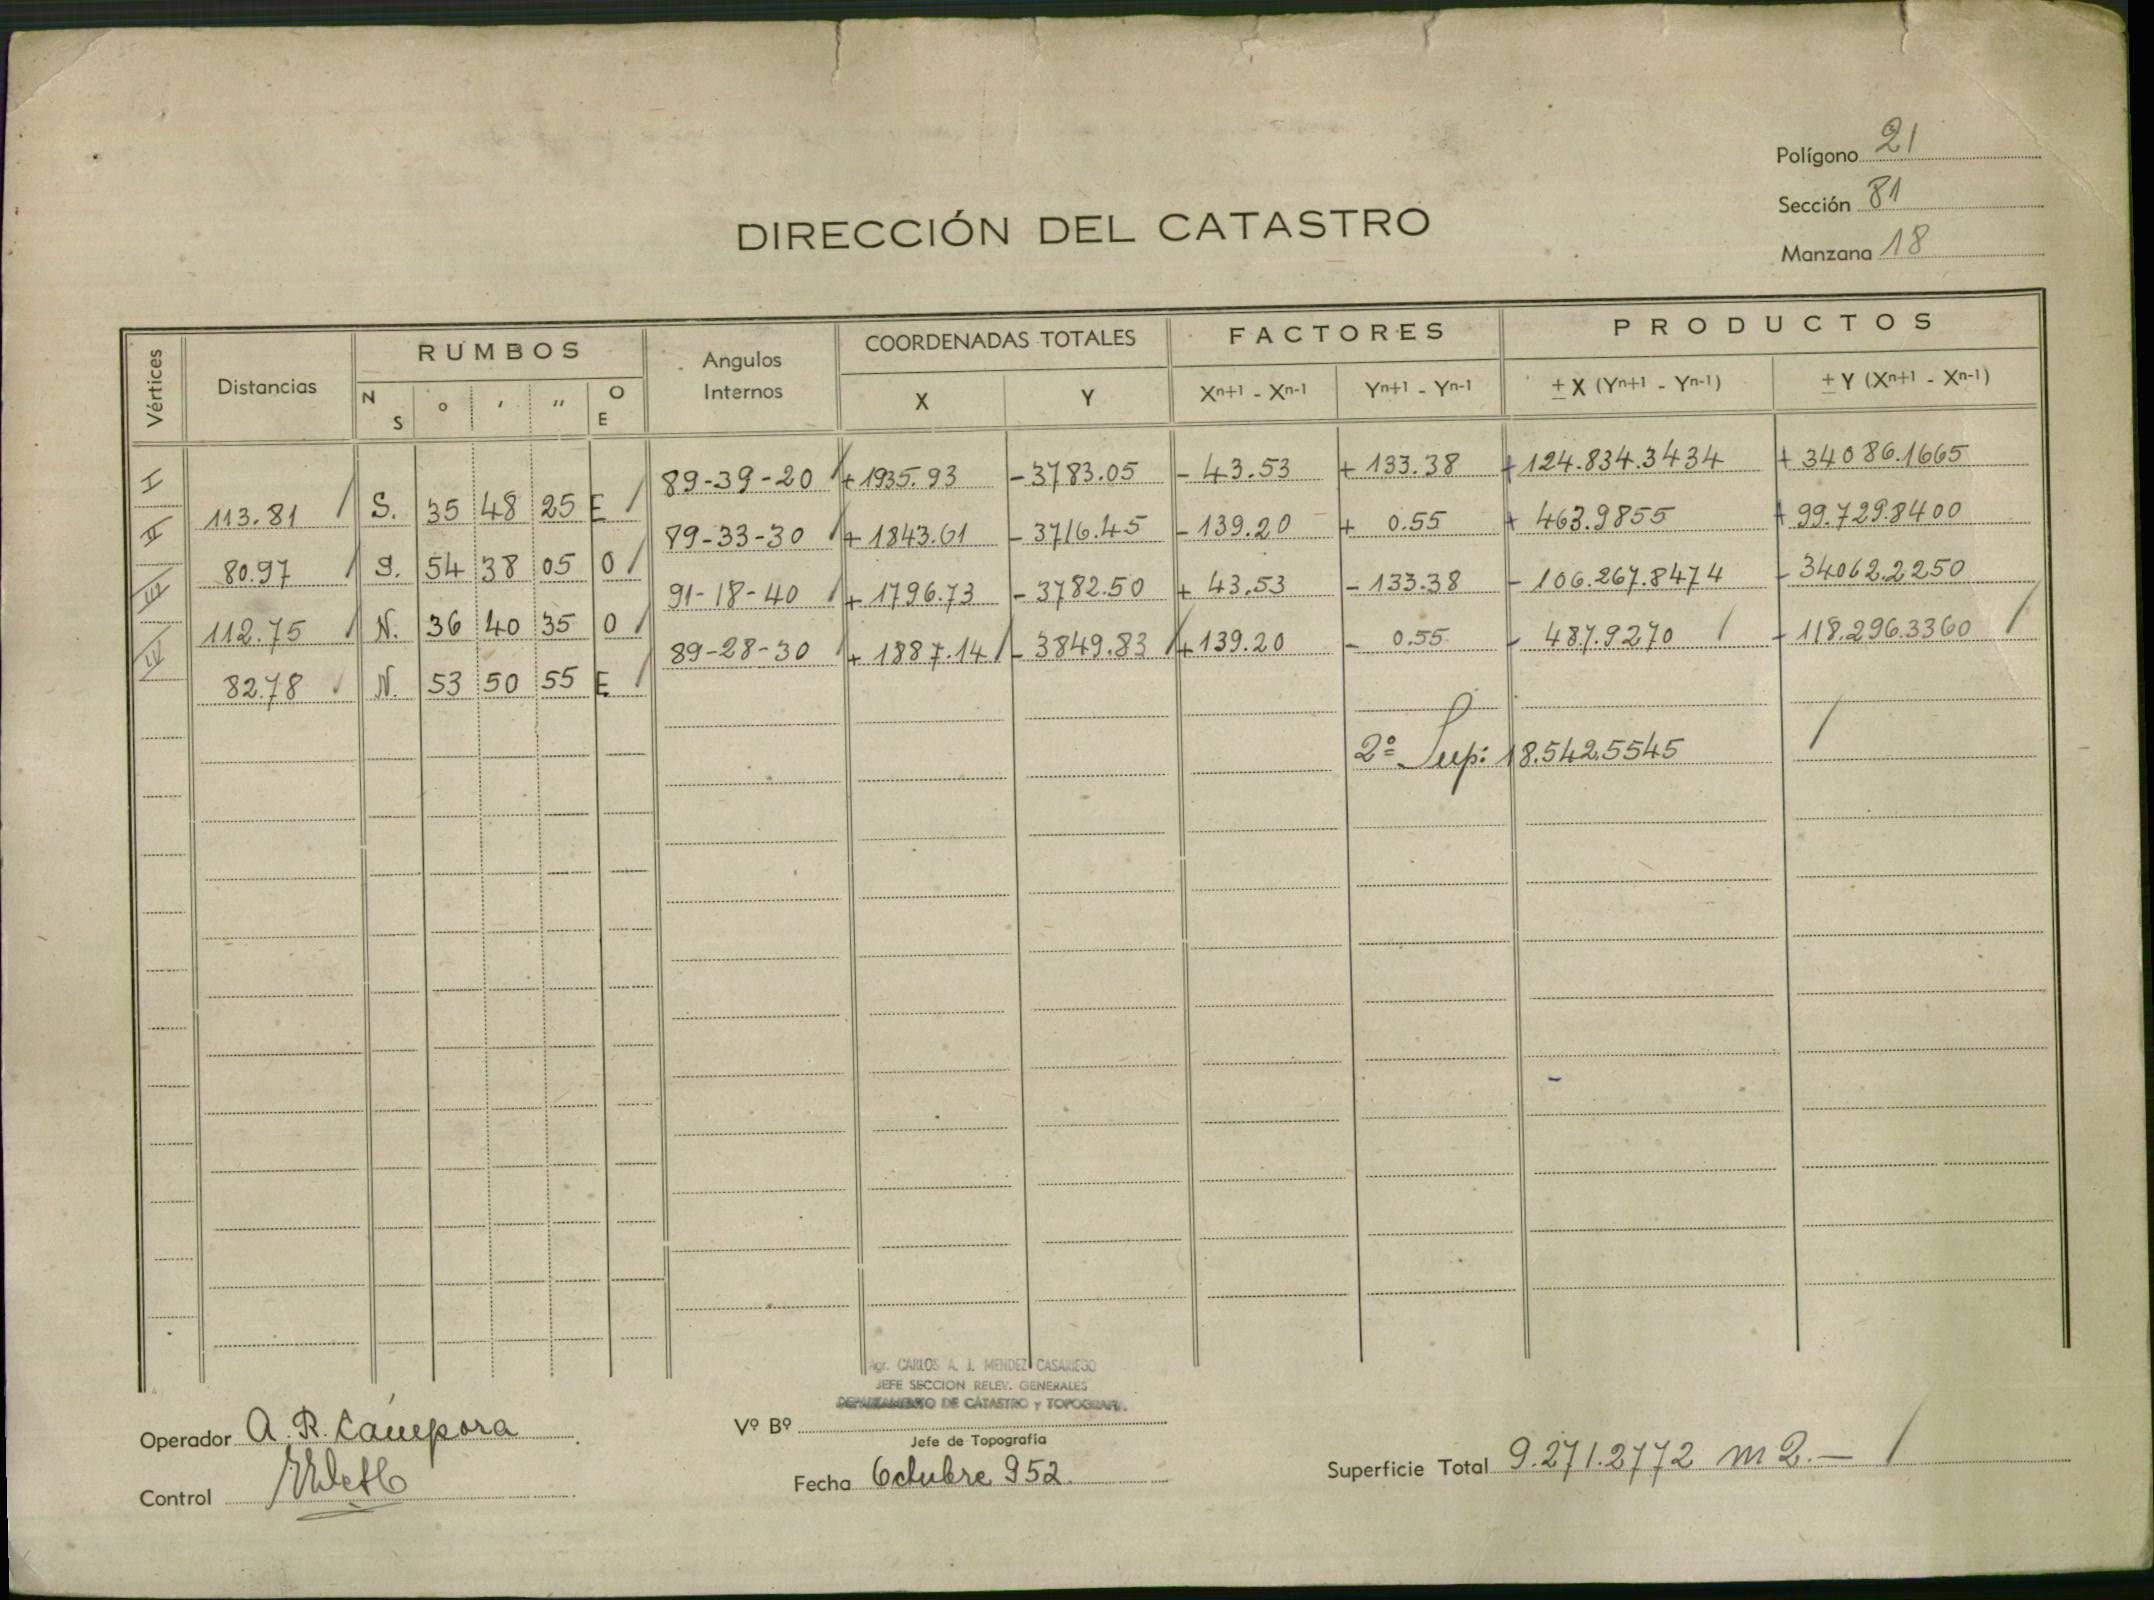 Polígono 21
Sección 81
Manzana 18
DIRECCIÓN DEL CATASTRO
Vértices Distancias RUMBOS N S ° ′ ″ O E Angulos Internos COORDENADAS TOTALES X Y FACTORES Xn+1 - Xn-1 Yn+1 - Yn-1 PRODUCTOS ± X (Yn+1 - Yn-1) ± Y (Xn+1 - Xn-1)
I 89-39-20 +1935.93 -3783.05 -43.53 +133.38 +124.834.3434 +34086.1665
113.81 S. 35 48 25 E
II 89-33-30 +1843.61 -3716.45 -139.20 + 0.55 + 463.9855 +99.729.8400
80.97 S. 54 38 05 O
III 91-18-40 +1796.73 -3782.50 + 43.53 -133.38 - 106.267.8474 -34062.2250
112.75 N. 36 40 35 O
IV 89-28-30 + 1887.14 -3849.83 +139.20 - 0.55 - 487.9270 -118.296.3360
82.78 N. 53 50 55 E
2º Sup: 18.542.5545
Agr. CARLOS A. J. MENDEZ CASARIEGO
JEFE SECCION RELEV. GENERALES
DEPARTAMENTO DE CATASTRO y TOPOGRAFI.
Operador A. R. Cámpora
Vº Bº
Jefe de Topografía
Control
Fecha Octubre 952.
Superficie Total 9.271.2772 m2.—